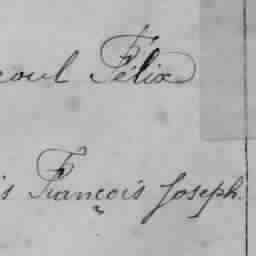 Félix
François Joseph.